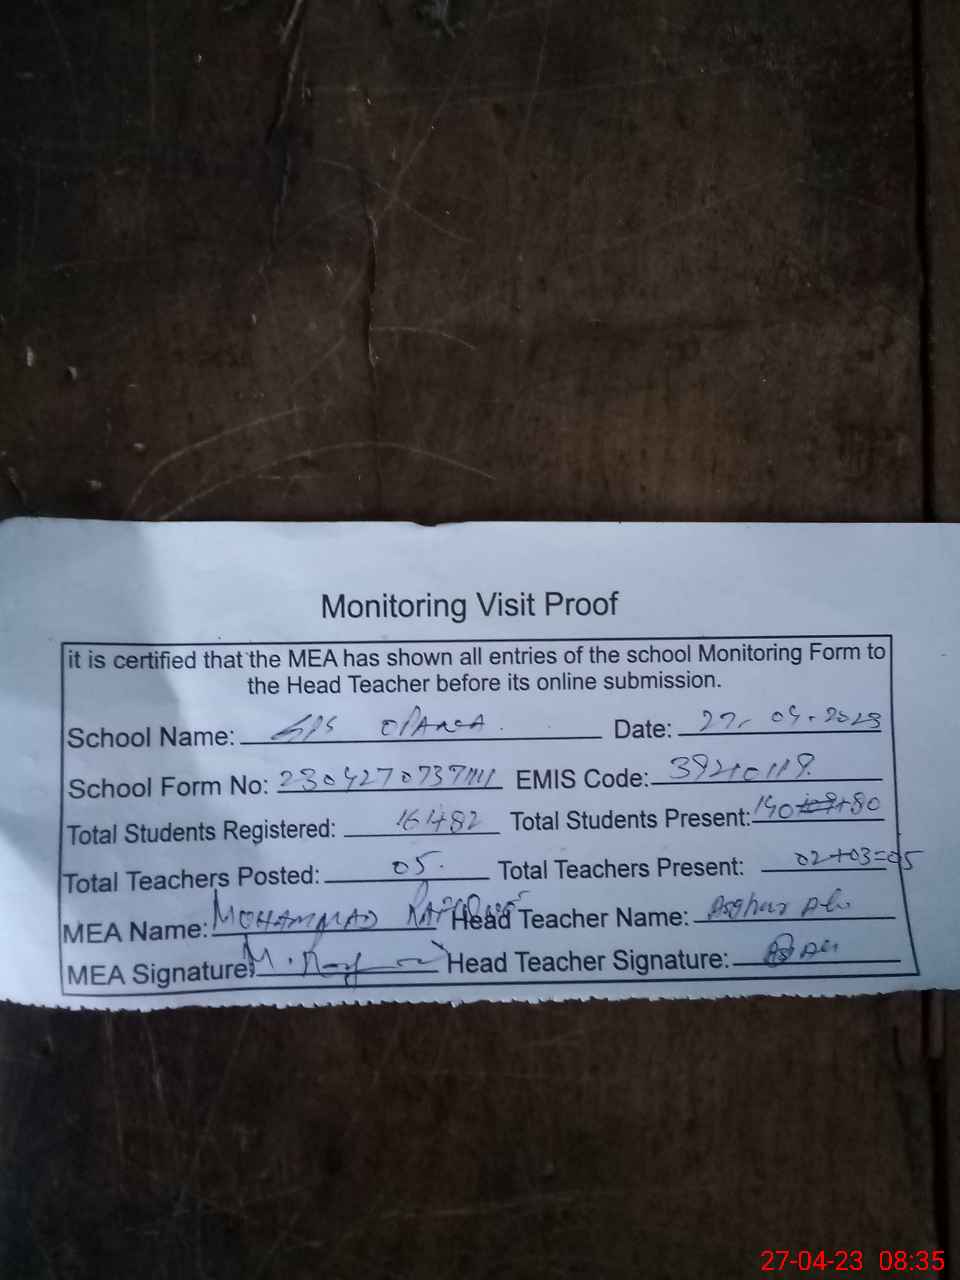 Monitoring Visit Proof
it is certified that the MEA has shown all entries of the school Monitoring Form to
the Head Teacher before its online submission.
School Name: GPS Date: 27-04-2023
School Form No: EMIS Code:
Total Students Registered: Total Students Present:
Total Teachers Posted: 05. Total Teachers Present: 02+03=05
MEA Name: MOHAMMAD Head Teacher Name: Asghar Ali
MEA Signature: Head Teacher Signature:
27-04-23 08:35